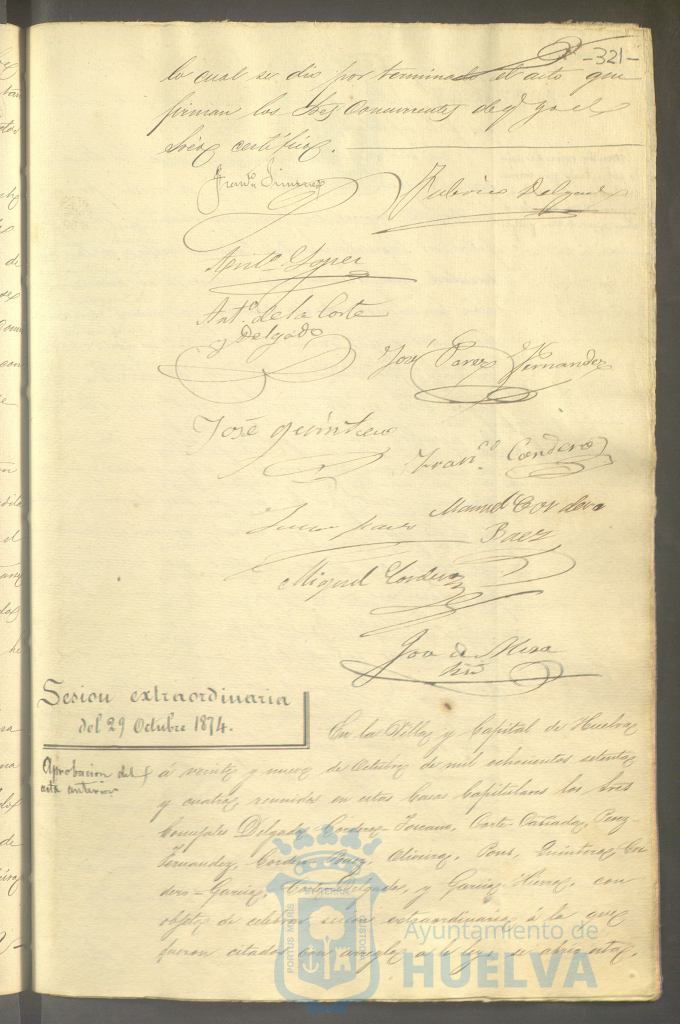 -321-
lo cual se dio por terminado el acto que
firman los Sres Concurrentes de q. yo el
Srio certifico.
Franco Jimenez
Federico Delgado
Anto Lopez
Anto de la Corte
y Delgado
José Perez Fernandez
José Quintero
Franco Cordero
Manuel Cordero
Baez
Miguel Cordero
de Mora
Sesion extraordinaria
del 29 Octubre 1874.
Aprobacion del
acta anterior
En la Villa y Capital de Huelva
á veinte y nueve de Octubre de mil ochocientos setenta
y cuatro, reunidos en estas Casas Capitulares los Sres
Concejales Delgado, Cordero-Toscano, Corte-Castada, Perez-
Fernandez, Cordero-Baez, Oliveira, Pons, Quintero, Cor
dero-Garcia, Corte-Delgado, y Garcia-Hierro, con
objeto de celebrar sesion extraordinaria á la que
fueron citados con arreglo a la ley, se abrio esta,
PORTUS MARIS ET TERRAE CUSTODIA
Ayuntamiento de
HUELVA